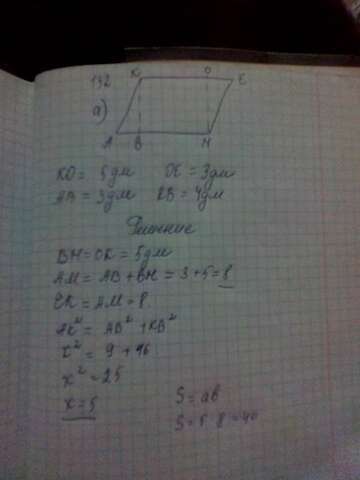 132 K O E
а)
A B H
KO = 5дм OE = 3дм
AB = 3дм KB = 4дм
Решение
BH = OK = 5дм
AM = AB + BH = 3 + 5 = 8
EK = AM = 8
AK² = AB² + KB²
x² = 9 + 16
x² = 25
x = 5
S = ab
S = 5 · 8 = 40